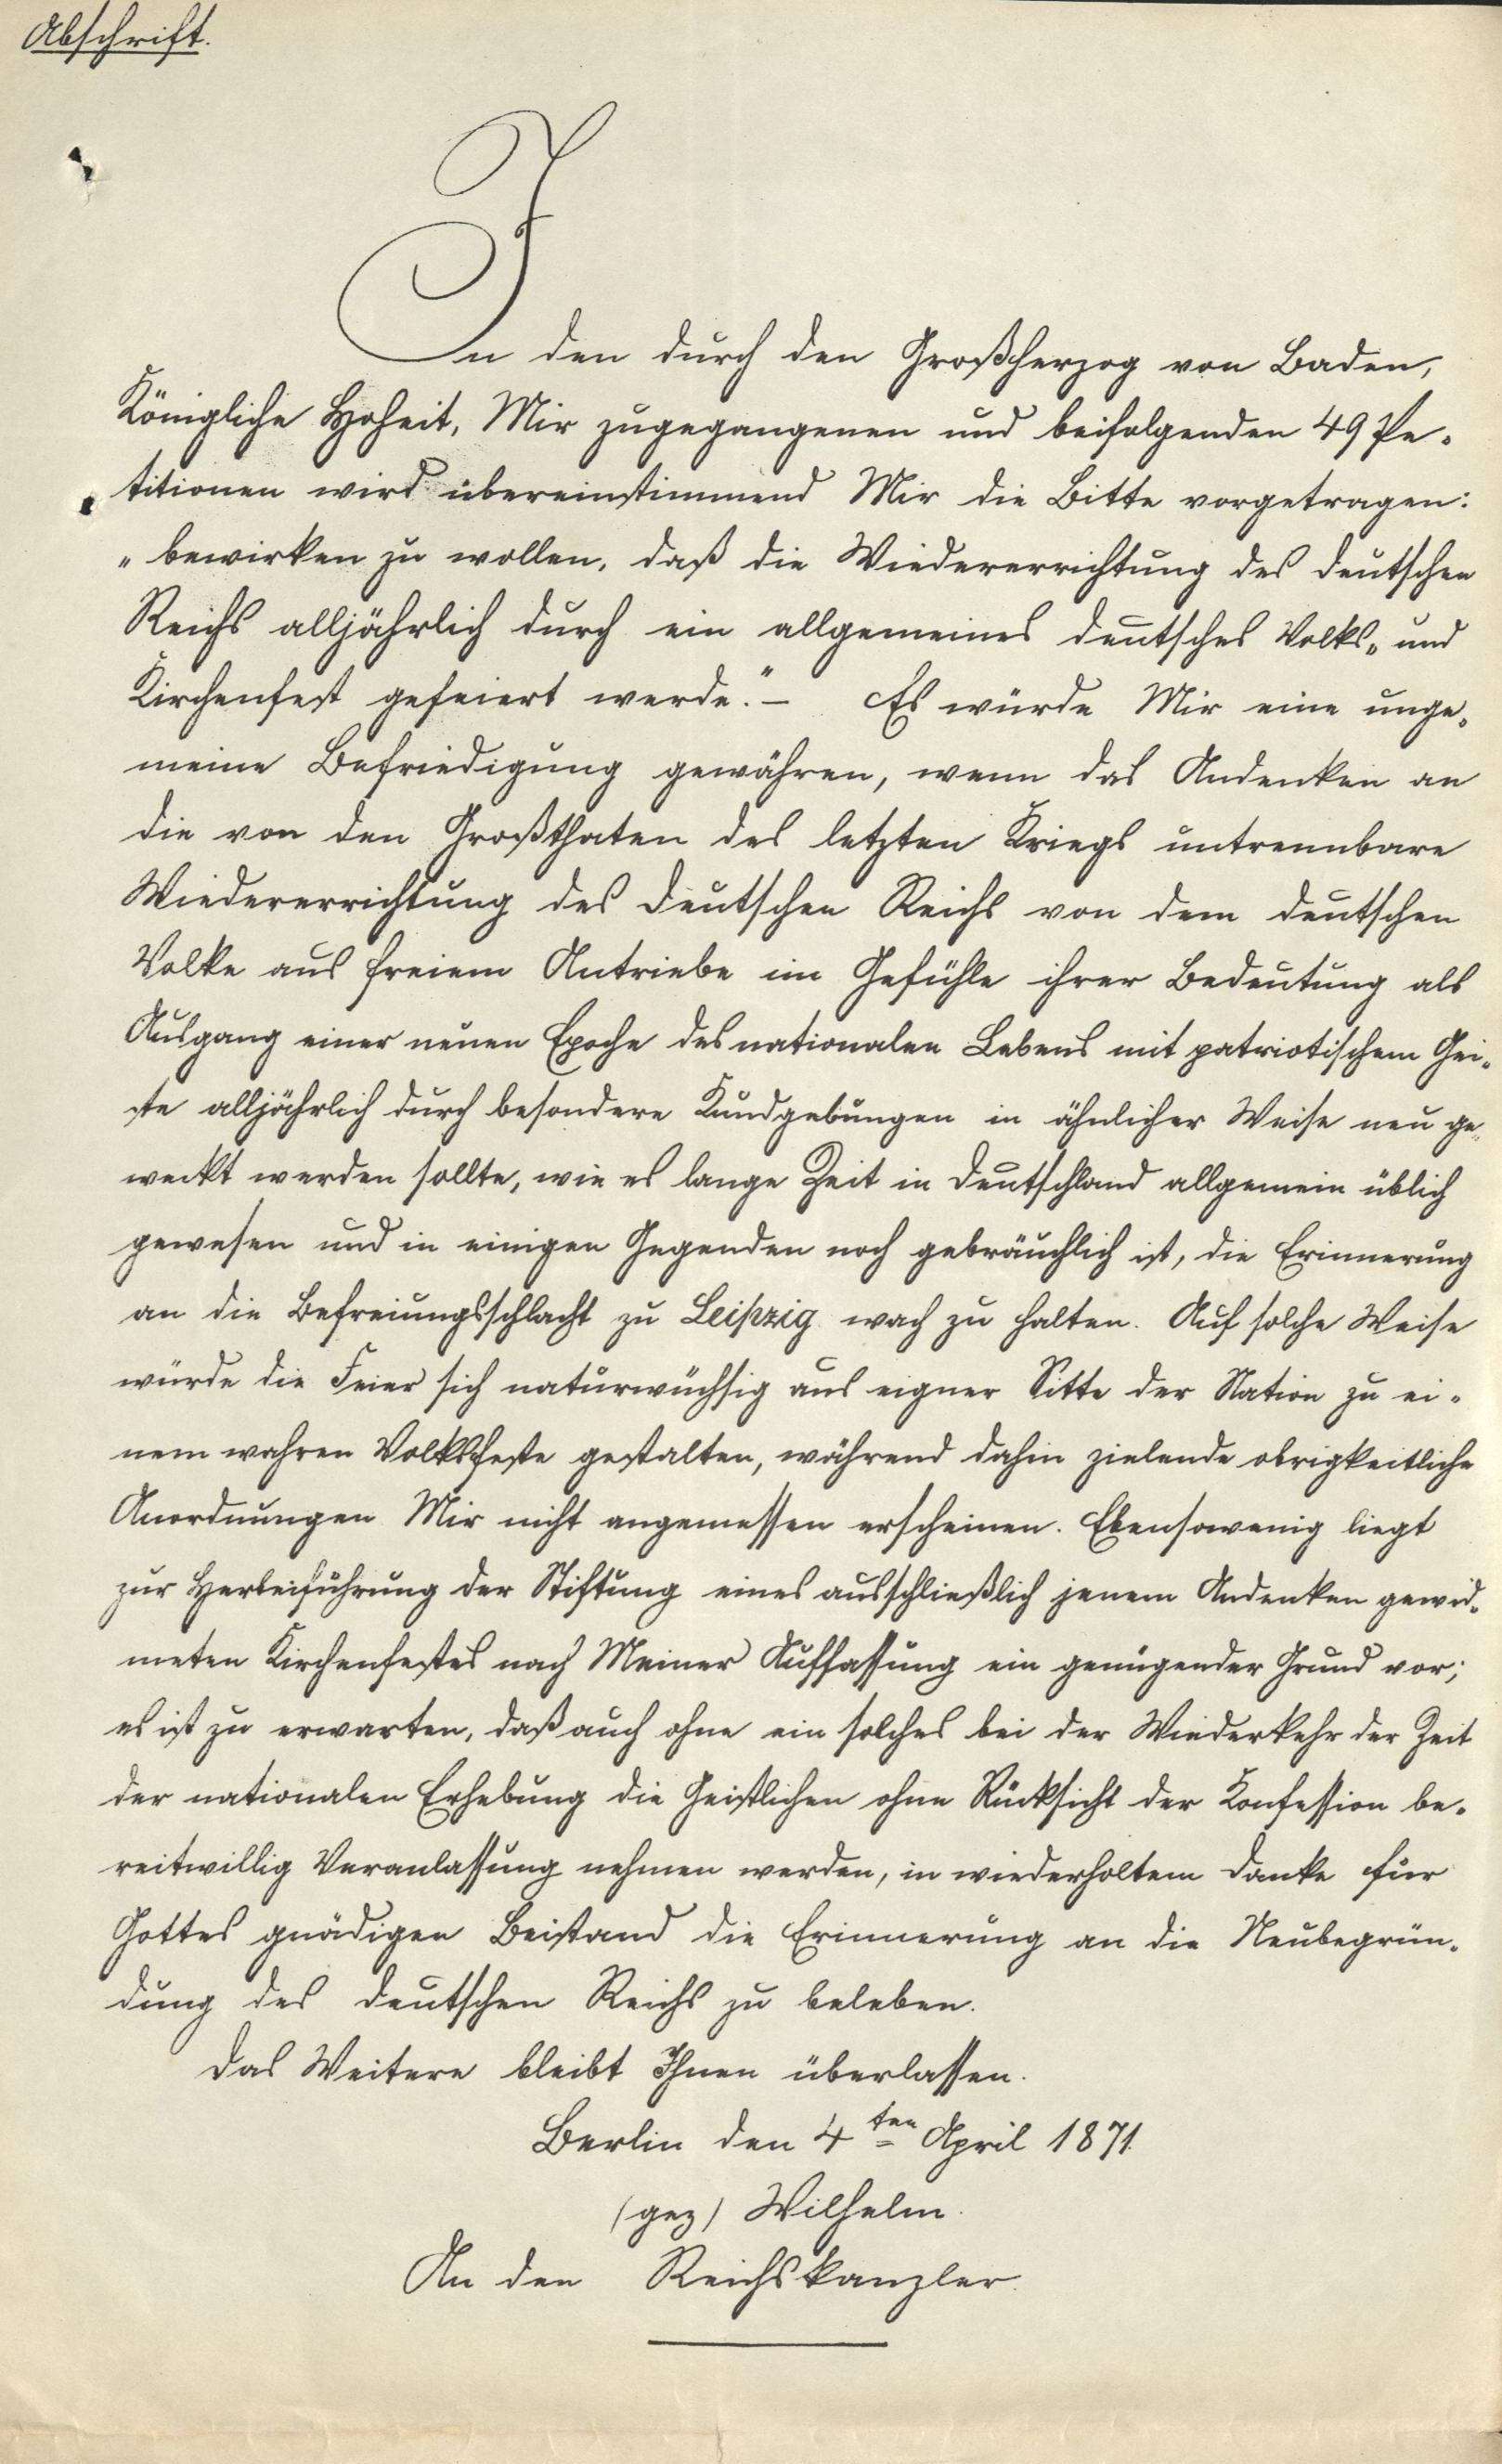 Abschrift.
In den durch den Großherzog von Baden,
Königliche Hoheit, Mir zugegangenen und beifolgenden 49 Pe-
titionen wird übereinstimmend Mir die Bitte vorgetragen:
"bewirken zu wollen, daß die Wiedererrichtung des deutschen
Reichs alljährlich durch ein allgemeines deutsches Volks- und
Kirchenfest gefeiert werde." – Es würde Mir eine unge-
meine Befriedigung gewähren, wenn das Andenken an
die von den Großthaten des letzten Kriegs untrennbare
Wiedererrichtung des deutschen Reichs von dem deutschen
Volke aus freiem Antriebe im Gefühle ihrer Bedeutung als
Ausgang einer neuen Epoche des nationalen Lebens mit patriotischem Gei-
ste alljährlich durch besondere Kundgebungen in ähnlicher Weise neu ge-
weckt werden sollte, wie es lange Zeit in Deutschland allgemein üblich
gewesen und in einigen Gegenden noch gebräuchlich ist, die Erinnerung
an die Befreiungsschlacht zu Leipzig wach zu halten. Auf solche Weise
würde die Feier sich naturwüchsig aus eigner Sitte der Nation zu ei-
nem wahren Volksfeste gestalten, während dahin zielende obrigkeitliche
Anordnungen Mir nicht angemessen erscheinen. Ebensowenig liegt
zur Herbeiführung der Stiftung eines ausschließlich jenem Andenken gewid-
meten Kirchenfestes nach Meiner Auffassung ein genügender Grund vor;
es ist zu erwarten, daß auch ohne ein solches bei der Wiederkehr der Zeit
der nationalen Erhebung die Geistlichen ohne Rücksicht der Konfession be-
reitwillig Veranlassung nehmen werden, in wiederholtem Danke für
Gottes gnädigen Beistand die Erinnerung an die Neubegrün-
dung des deutschen Reichs zu beleben.
Das Weitere bleibt Ihnen überlassen.
Berlin den 4ten April 1871.
(gez) Wilhelm.
An den Reichskanzler.